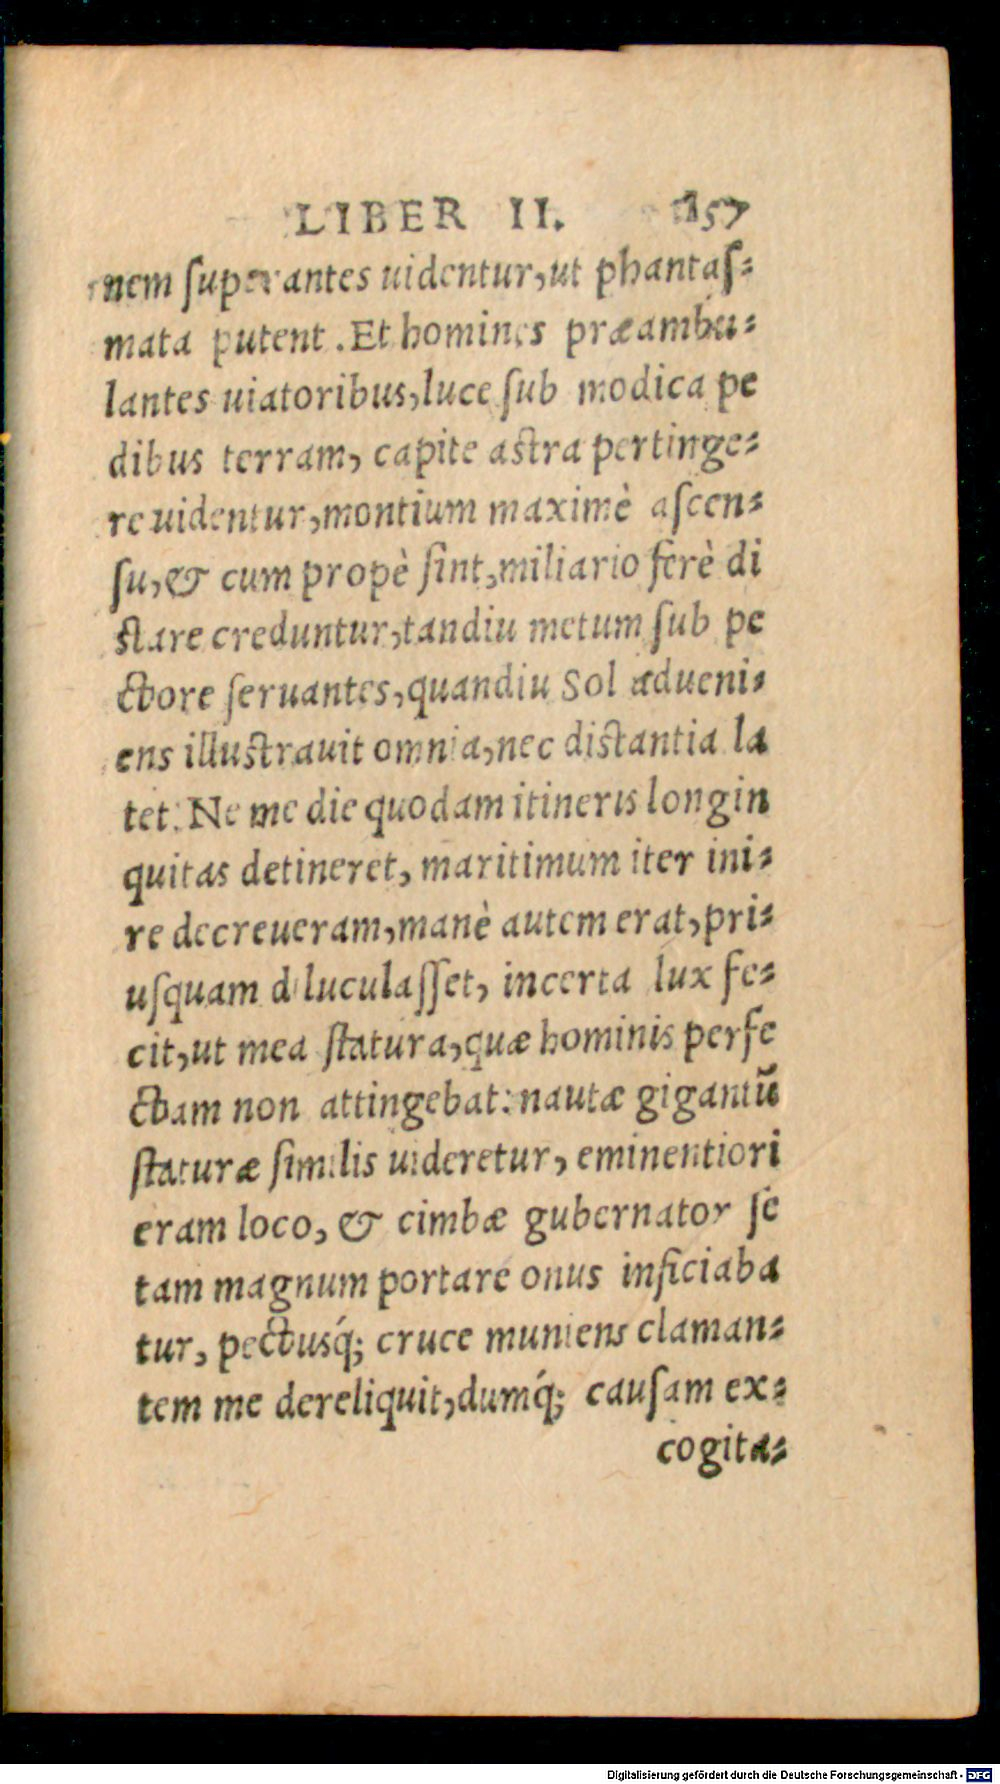 LIBER II. 157
nem superantes uidentur, ut phantas-
mata putent. Et homines præambu-
lantes uiatoribus, luce sub modica pe
dibus terram, capite astra pertinge-
re uidentur, montium maximè ascen-
su, & cum propè sint, miliario ferè di
stare creduntur, tandiu metum sub pe
ctore seruantes, quandiu Sol adueni-
ens illustrauit omnia, nec distantia la
tet. Ne me die quodam itineris longin
quitas detineret, maritimum iter ini-
re decreueram, manè autem erat, pri-
usquam diluculasset, incerta lux fe-
cit, ut mea statura, quæ hominis perfe
ctam non attingebat: nautæ gigantū
staturæ similis uideretur, eminentiori
eram loco, & cimbæ gubernator se
tam magnum portare onus inficiaba
tur, pectusq́; cruce muniens claman-
tem me dereliquit, dumq́; causam ex-
cogita-
Digitalisierung gefördert durch die Deutsche Forschungsgemeinschaft - DFG